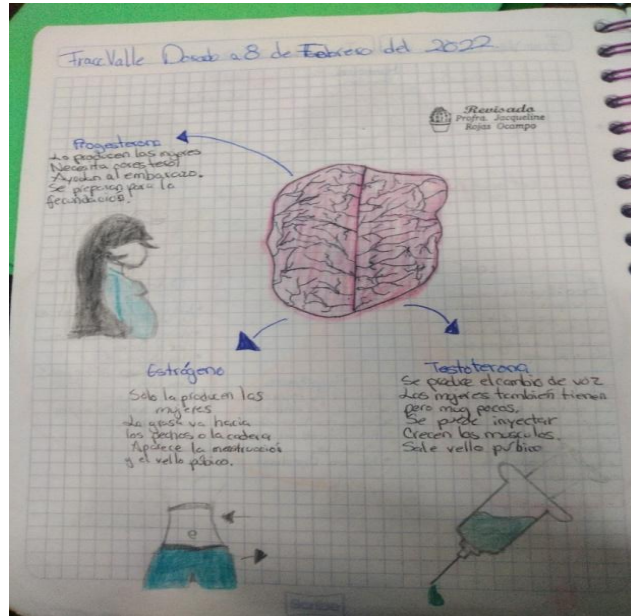 Fracc Valle Dorado a 8 de Febrero del 2022
Revisado
Profra. Jacqueline
Rojas Ocampo
Progesterona
Lo producen las mujeres
Necesita
Ayudan al embarazo.
Se preparan para la
fecundación.
Estrógeno
Solo la producen las
mujeres
La grasa va hacia
los pechos o la cadera
Aparece la menstruación
y el vello púbico.
Testoterona
Se produce el cambio de voz
Las mujeres también tienen
pero muy pocas.
Se puede inyectar
Crecen los musculos.
Sale vello púbico
Scribe